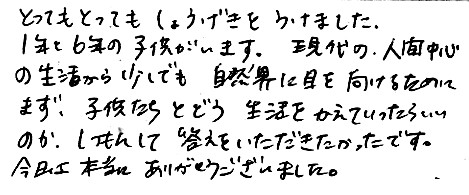 とってもとっても しょうげきを うけました。
1年と6年の子供がいます。 現代の、人間中心
の生活から少しでも 自然界に目を向けるために
まず、子供たちとどう生活をかえていったらいい
のか、しつもんして 答えをいただきたかったです。
今日は 本当に ありがとうございました。